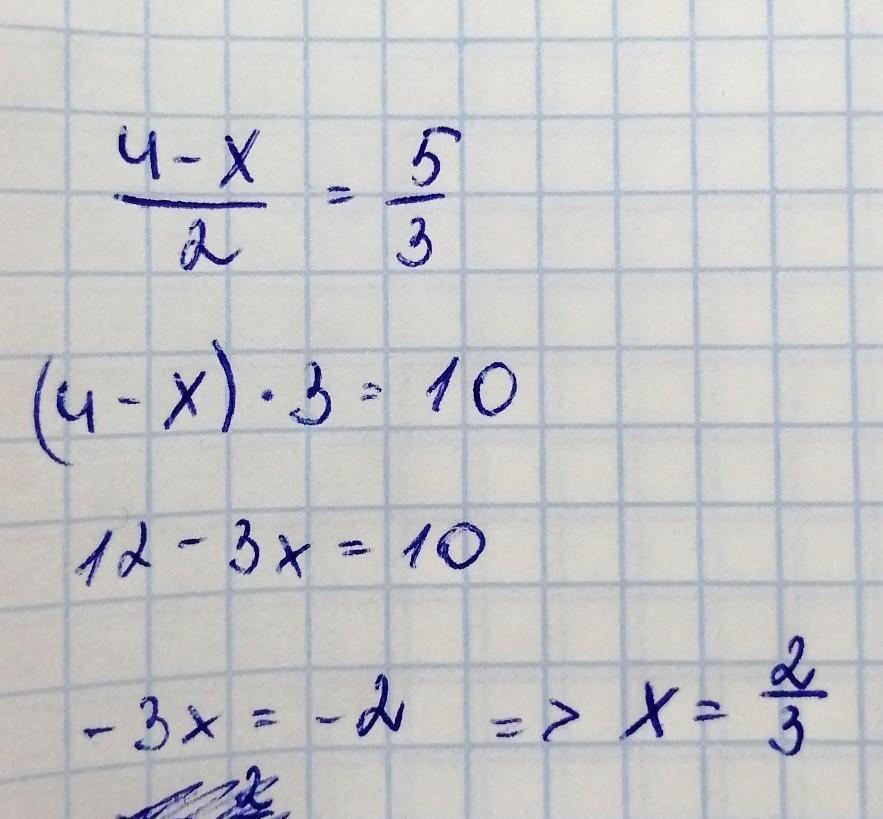 4-x/2 = 5/3
(4-x)·3=10
12-3x=10
-3x=-2 => x=2/3
2